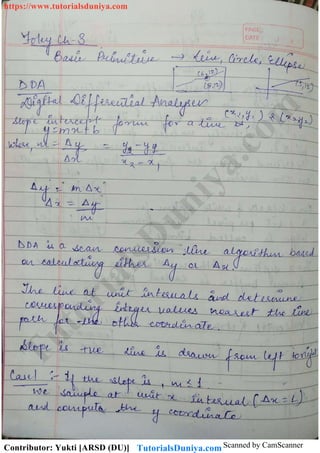 https://www.tutorialsduniya.com
PAGE:
DATE:
Foley Ch-3
Basic Primitive → Line, Circle, Ellipse
DDA
Digital Differential Analyser
slope intercept form for a line (x1, y1) & (x2, y2)
y = mx + b
where, m = Δy / Δx = y2 - y1 / x2 - x1
Δy = m Δx
Δx = Δy / m
DDA is a scan conversion line algorithm based
on calculating either Δy or Δx
The line at unit intervals and determine
corresponding integer values nearest the line
path for the other coordinate.
Slope is +ve line is drawn from left to right
Case 1 :- If the slope is, m ≤ 1
we sample at unit x interval (Δx = 1)
and compute the y coordinate
Contributor: Yukti [ARSD (DU)] TutorialsDuniya.com Scanned by CamScanner